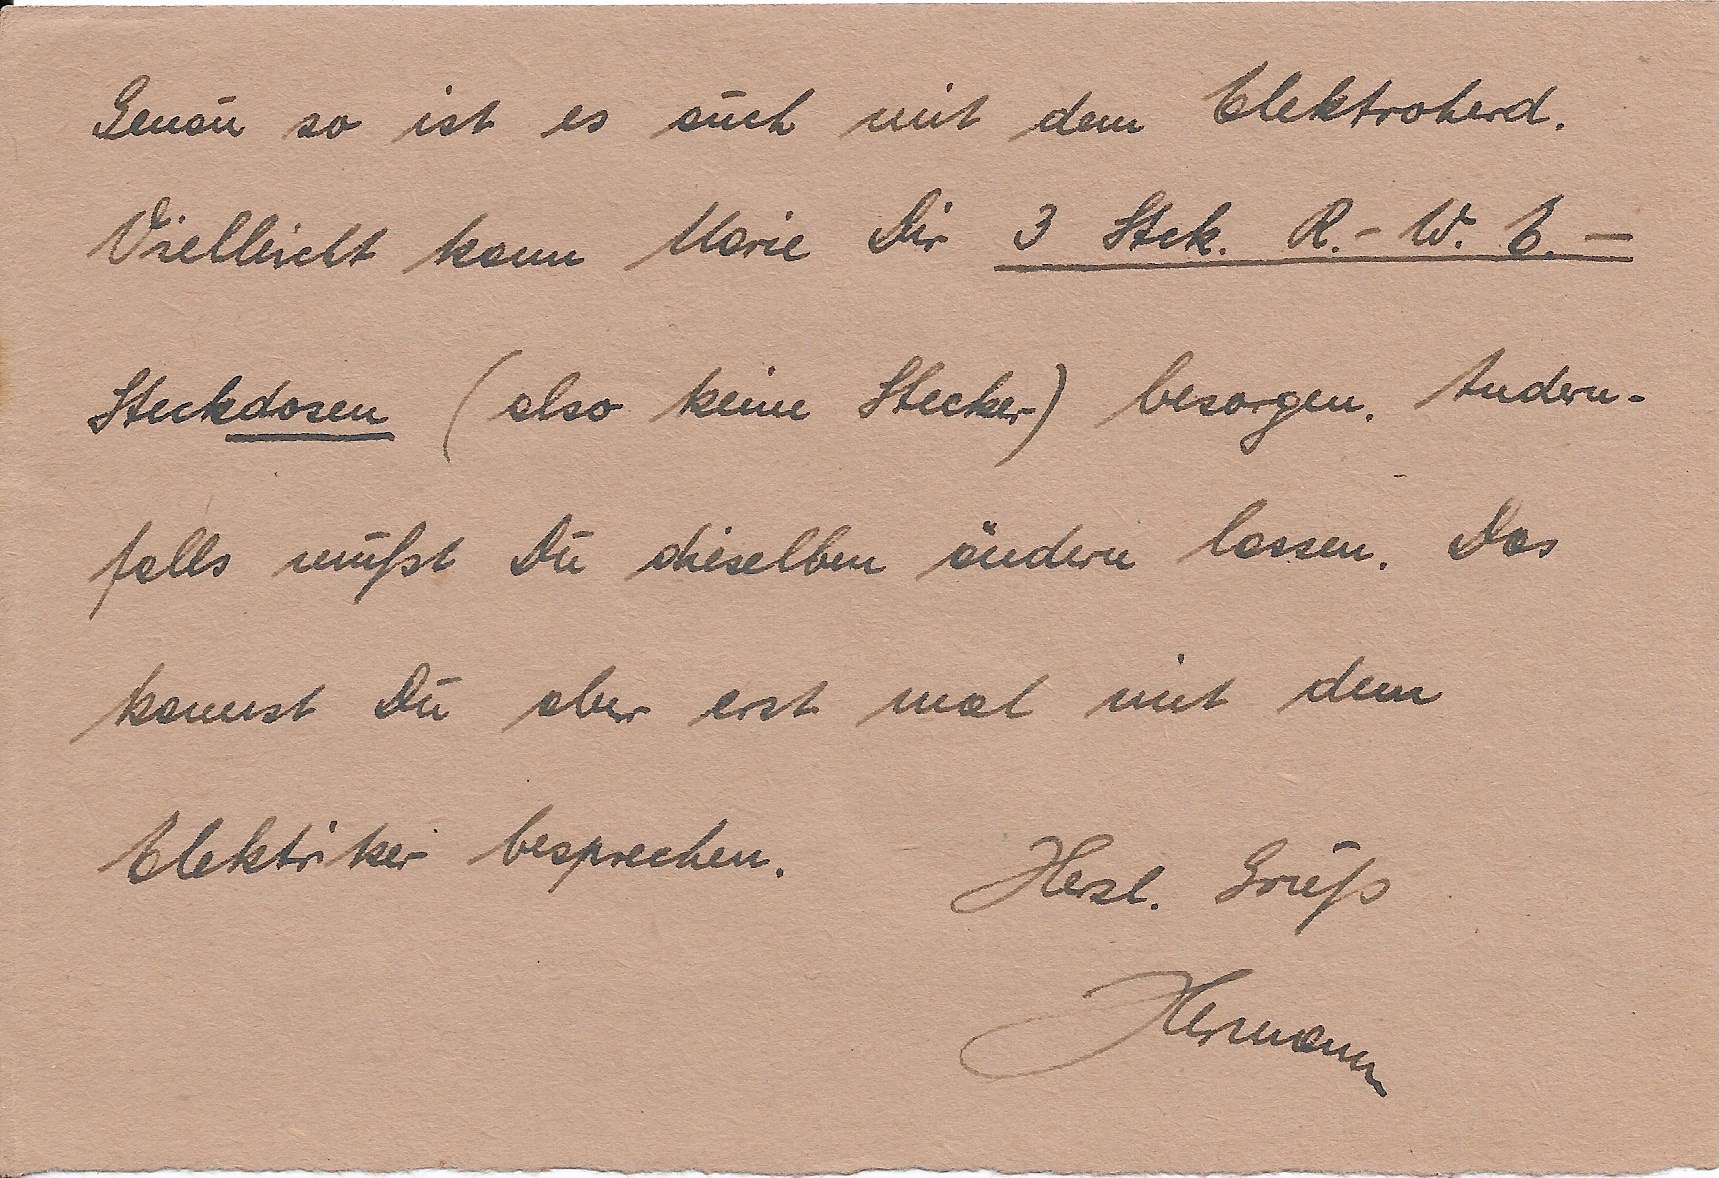 Genau so ist es auch mit dem Elektroherd.
Vielleicht kann Marie Dir 3 Stck. R.-W. E.-
Steckdosen (also keine Stecker) besorgen. Andern-
falls mußt Du dieselben ändern lassen. Das
kannst Du aber erst mal mit dem
Elektriker besprechen.
Herzl. Gruß
Hermann